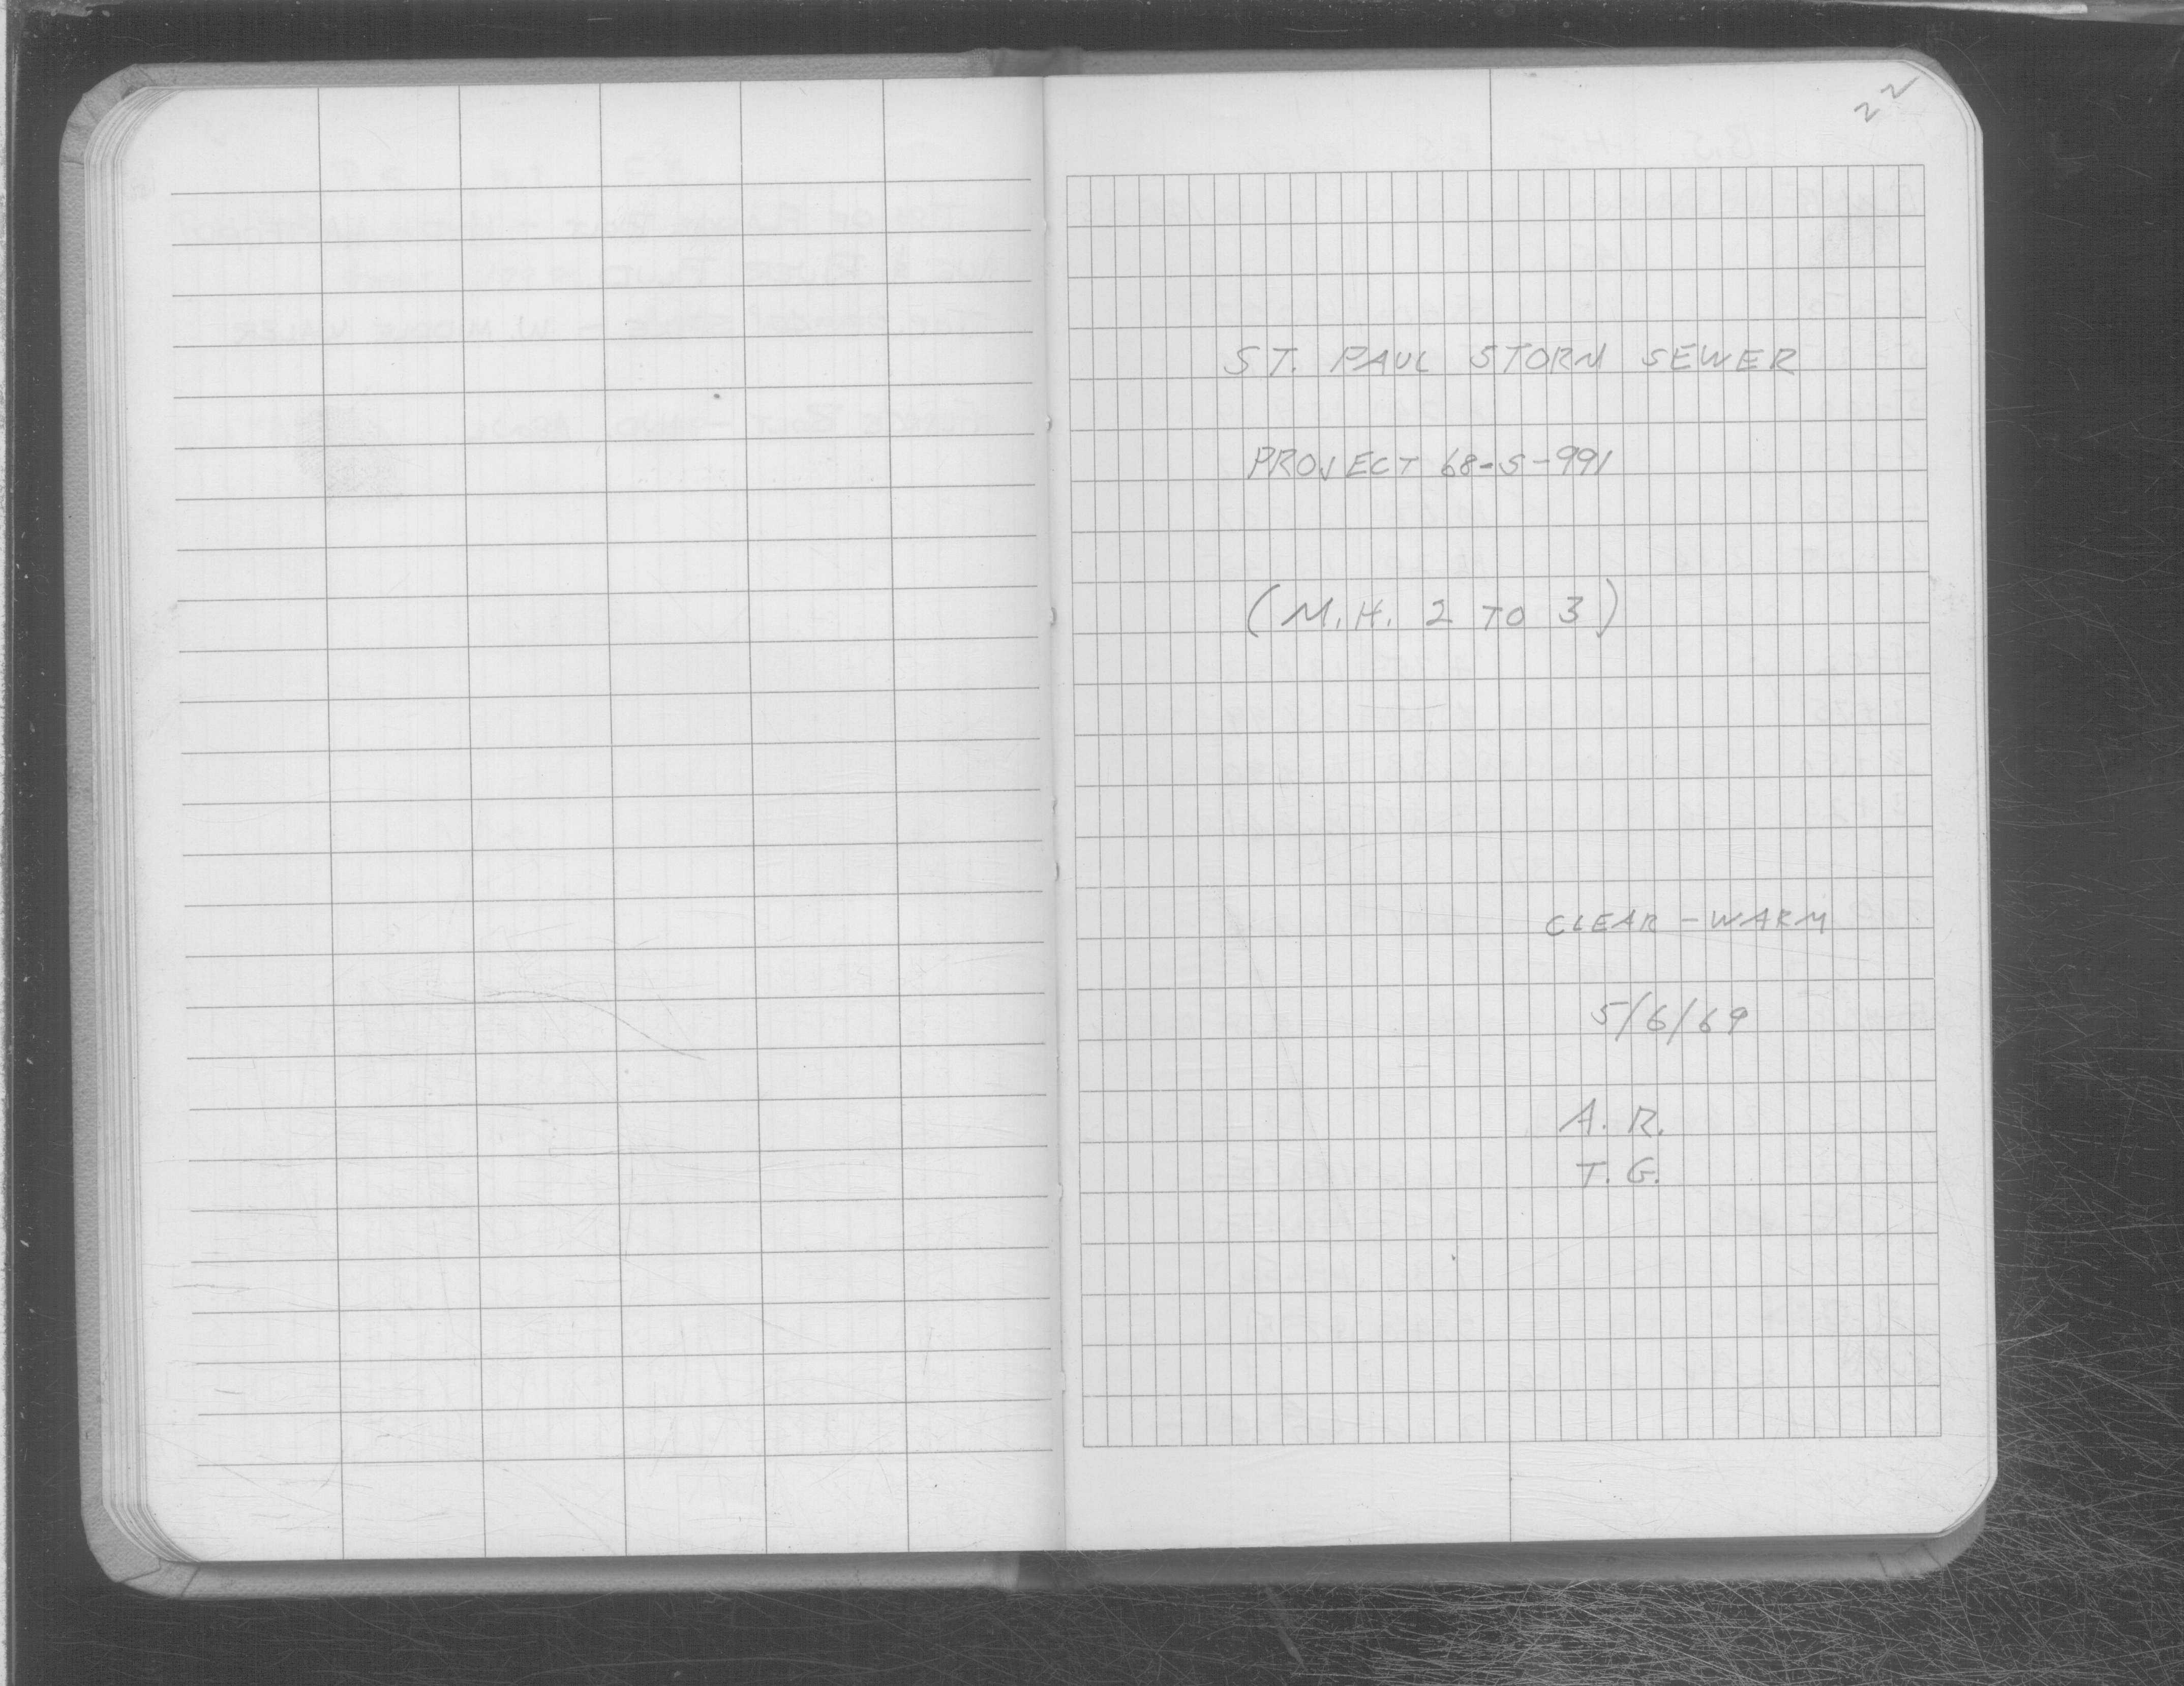 22
ST. PAUL STORM SEWER
PROJECT 68-S-991
(M.H. 2 TO 3)
CLEAR - WARM
5/6/69
A. R.
T. G.